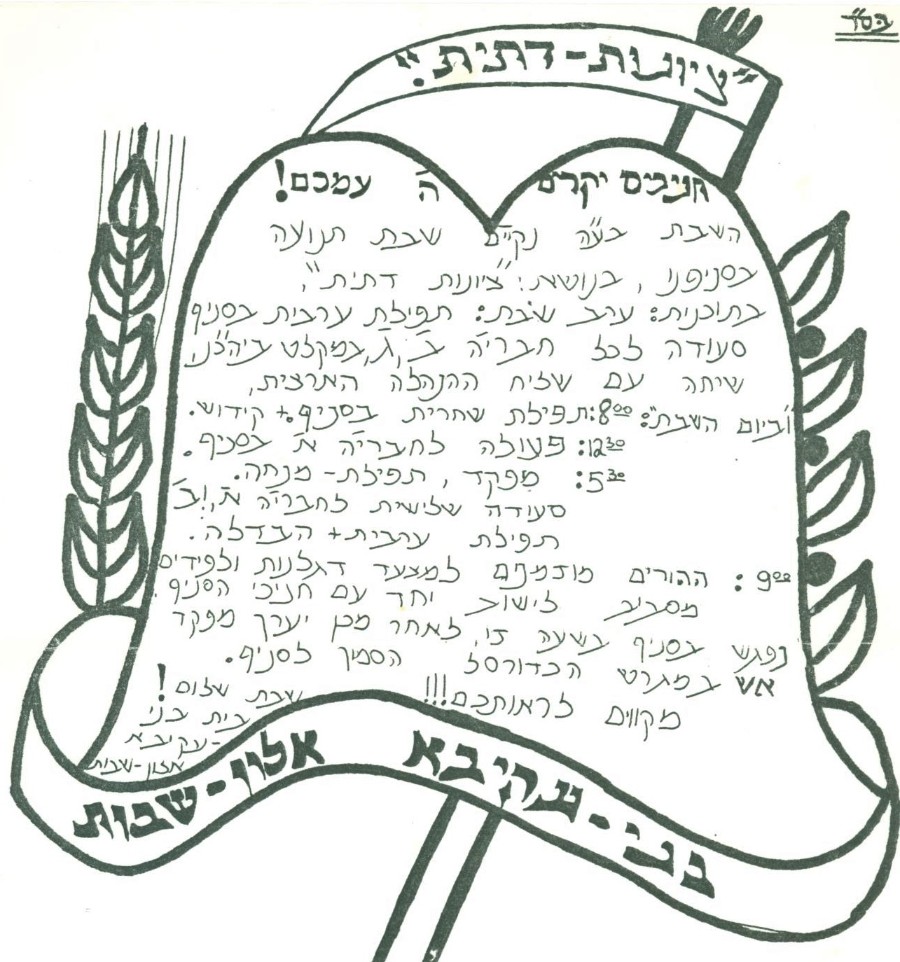 בס"ד
"ציונות-דתית".
חניכים יקרים ה' עמכם!
השבת בע"ה נקיים שבת תנועה
בסניפנו, בנושא: "ציונות דתית",
בתוכנית: ערב שבת: תפילת ערבית בסניף
סעודה לכל חבריה ב', ג', במקלט ביהכ"נ,
שיחה עם שליח ההנהלה הארצית,
"וביום השבת": 8:00: תפילת שחרית בסניף. + קידוש.
12:30: פעולה לחבריה א' בסניף.
5:30: מפקד, תפילת-מנחה.
סעודה שלישית לחבריה א', ו ב'
תפילת ערבית + הבדלה.
9:00: ההורים מוזמנים למצעד דגלנות ולפידים
מסביב לישוב יחד עם חניכי הסניף.
נפגש בסניף בשעה זו, לאחר מכן יערך מפקד
אש במגרש הכדורסל הסמוך לסניף.
מקווים לראותכם!!!
שבת שלום!
בית בני
-עקיבא
אלון-שבות
בני-עקיבא אלון-שבות